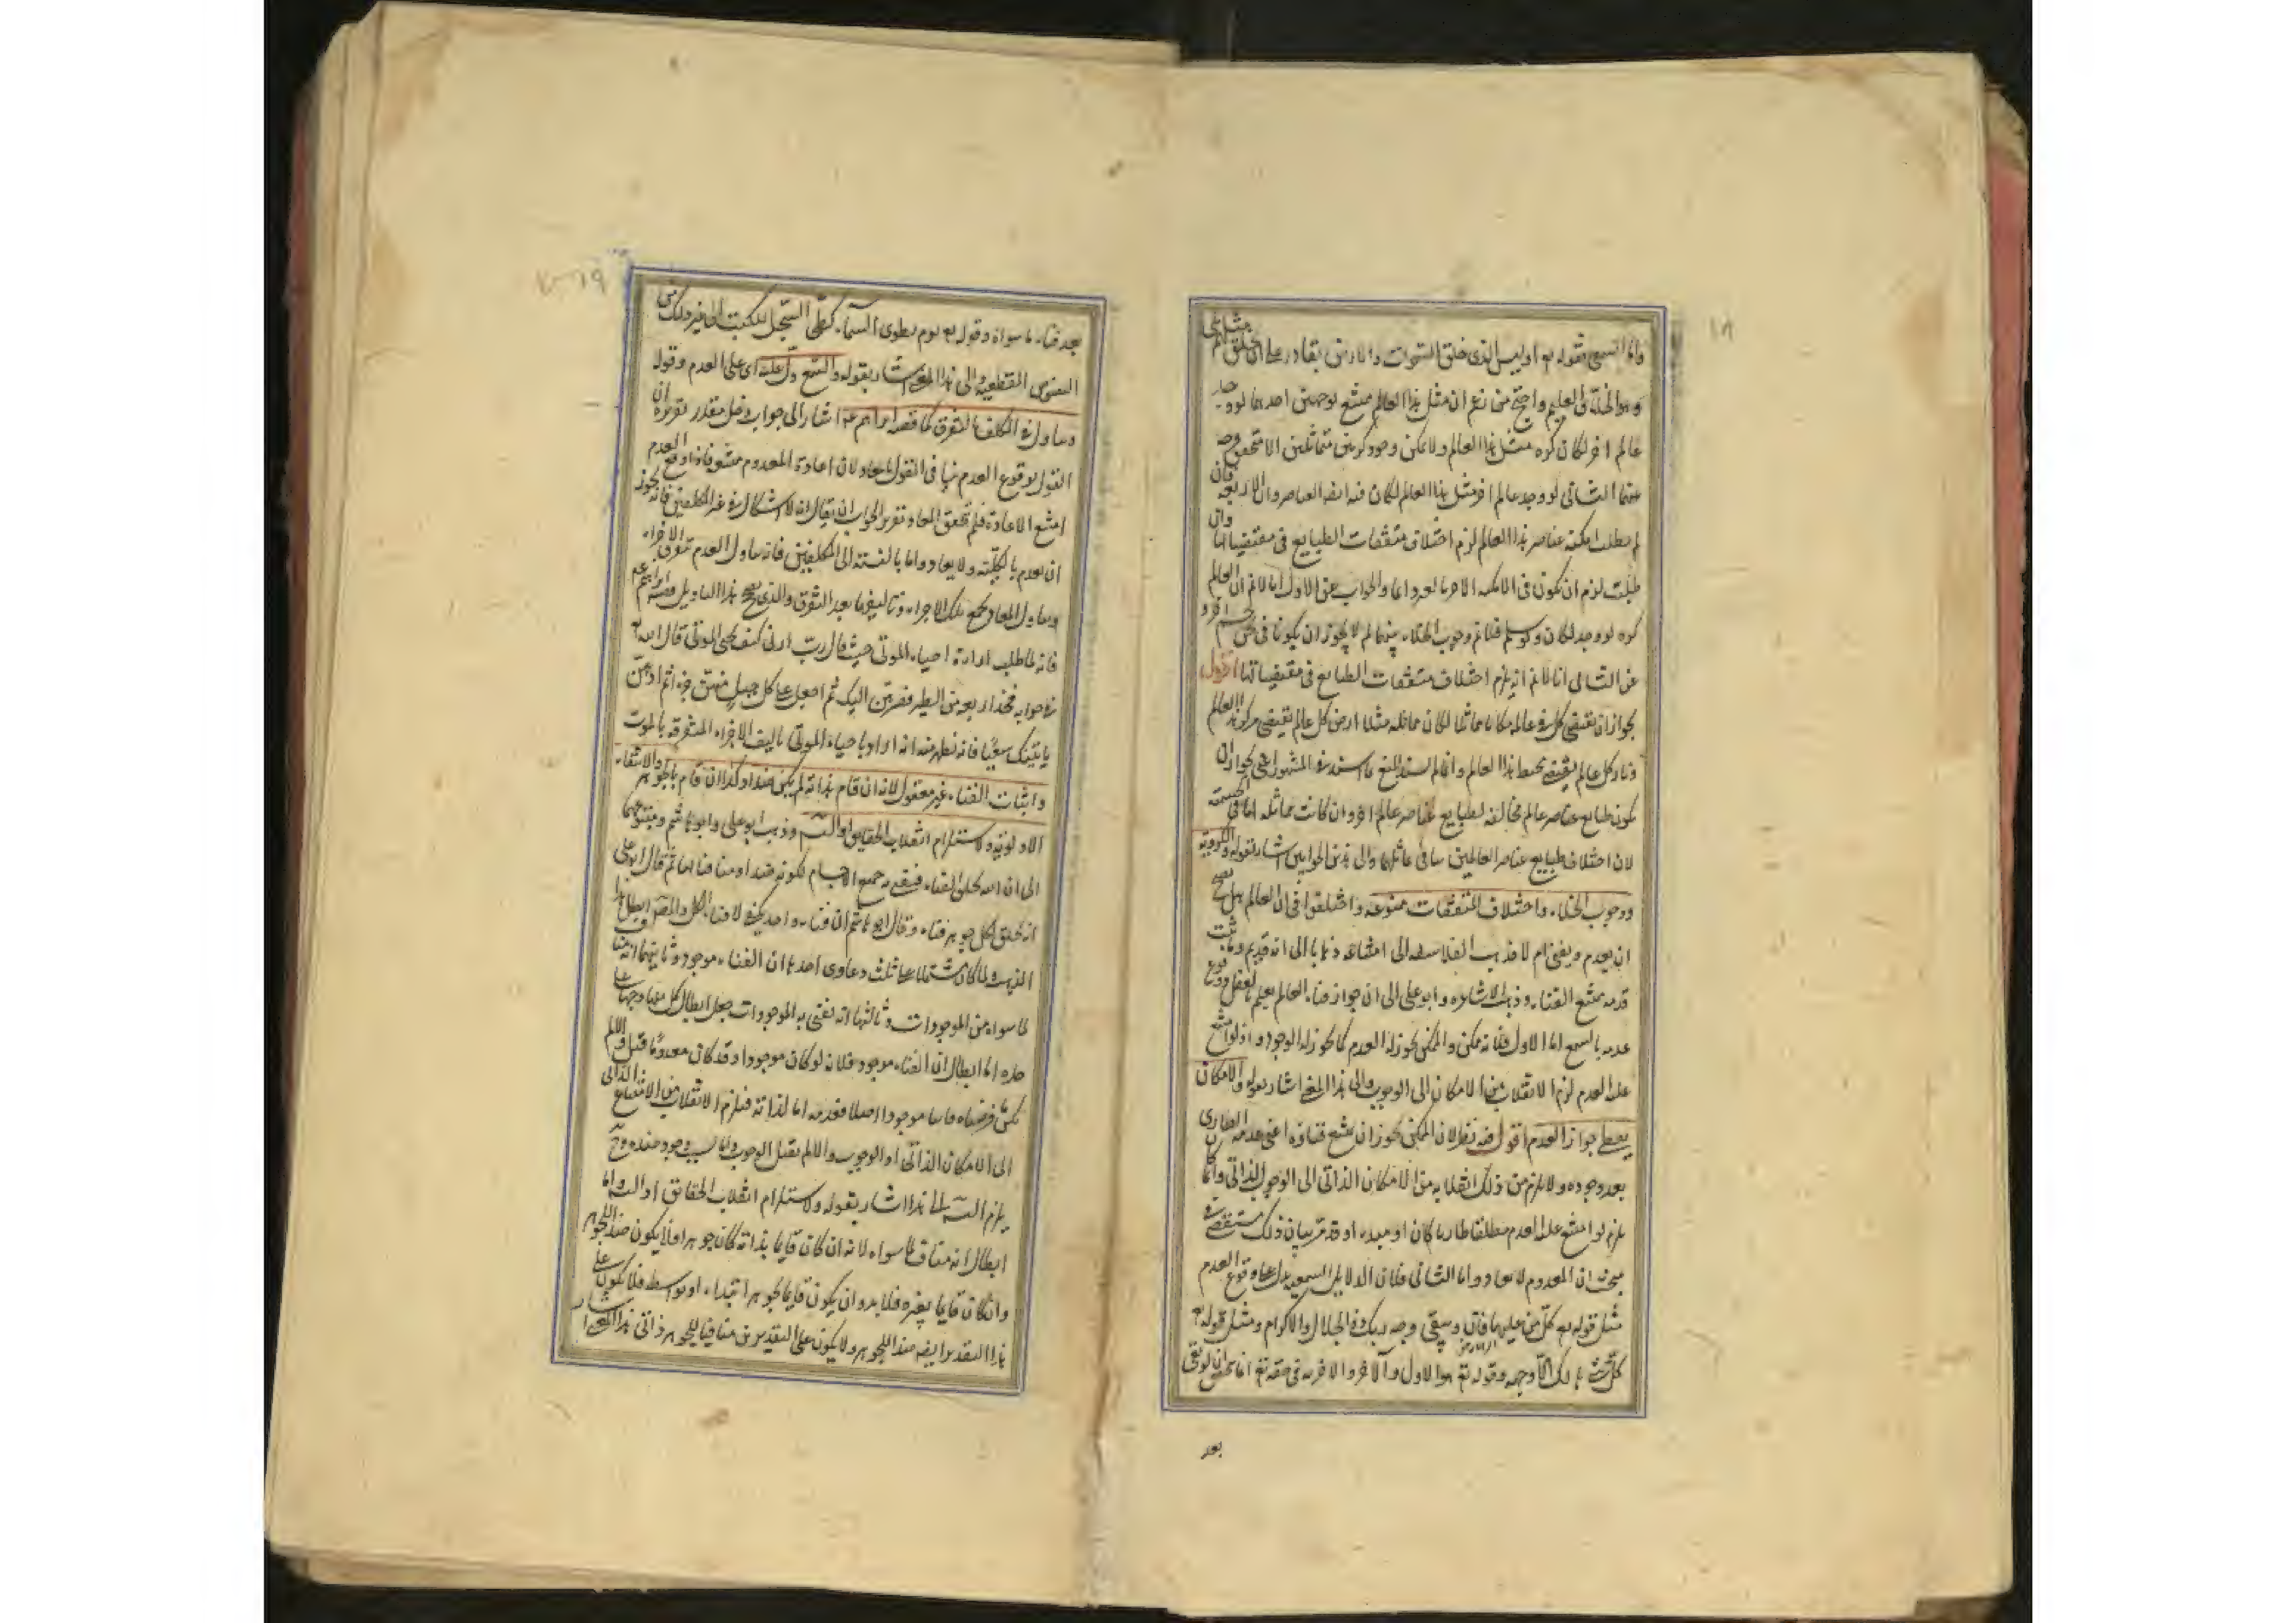 ١٨
واما السمع فقوله تع اوليس الذى خلق السموات والارض بقادر على ان يخلق مثلهم بلى
وهو الخلاق العليم واحتج من زعم ان مثل هذا العالم ممتنع بوجهين احدهما لو وجد
عالم اخر لكان كرة مثل هذا العالم ولا يمكن وجود كرتين متماثلتين الا بتحقق فرجة
بينهما الثانى لو وجد عالم اخر مثل هذا العالم لكان فيه ايضا العناصر الاربعة فان
لم يطلب امكنة عناصر هذا العالم لزم اختلاف متفقات الطبايع فى مقتضياتها وان
طلبت لزم ان تكون فى الامكنة الاخر بالقسر دايما والجواب عن الاول انا لا نم ان العالم
كرة لو وجد لكان كرة ولو سلم فلا نم وجوب الخلاء بينهما لم لا يجوز ان يكونا فى ثخن جسم اخر و
عن الثانى انا لا نم انه يلزم اختلاف متفقات الطبايع فى مقتضياتها اقول
يجوز ان يقتضى كل فى عالمه مكانا مماثلا لمكان مماثله مثلا ارض كل عالم يقتضى مركز ذلك العالم
ونار كل عالم يقتضى محيط هذا العالم وانما لم يسند المنع بما اسند فى المشهور اعنى بجواز ان
يكون طبايع عناصر عالم مخالفة لطبايع عناصر عالم اخر وان كانت مماثلة لها فى الجسمية
لان اختلاف طبايع عناصر العالمين ينافى تماثلهما والى هذين الجوابين اشار بقوله والكروية
ووجوب الخلاء واختلاف المتفقات ممنوعة واختلفوا فى ان العالم هل يصح
ان يعدم ويفنى ام لا فذهب الفلاسفة الى امتناعه ذهابا الى انه قديم وما ثبت
قدمه يمتنع الفناء وذهب الاشاعرة وابو على الى ان جواز فناء العالم يعلم بالعقل ووقوع
عدمه بالسمع اما الاول فلانه ممكن والممكن يجوز له العدم كما يجوز له الوجود اذ لو امتنع
عليه العدم لزم الانقلاب من الامكان الى الوجوب والى هذا المعنى اشار بقوله والامكان
يعطى جواز العدم اقول فيه نظر لان الممكن يجوز ان يمتنع فناؤه اعنى عدمه الطارى
بعد وجوده ولا يلزم من ذلك انقلابه من الامكان الذاتى الى الوجوب الذاتى وانما
يلزم لو امتنع عليه العدم مطلقا طاريا كان او مبدء او قد مر بيان ذلك مستقصى فى
مبحث ان المعدوم لا يعاد واما الثانى فلان الدلايل السمعية يدل على وقوع العدم
مثل قوله تع كل من عليها فان ويبقى وجه ربك ذو الجلال والاكرام ومثل قوله تع
كل شئ هالك الا وجهه وقوله تع هو الاول والآخر والآخرية فى حقه تع انما يتحقق ان لو بقى
بعد
١٩
بعد فناء ما سواه وقوله تع يوم نطوى السماء كطى السجل للكتب الى غير ذلك من
النصوص القطعية والى هذا المعنى اشار بقوله والسمع دل عليه اى على العدم وقوله
ويتاول فى المكلف بالتفرق كما فى قصة ابراهيم عم اشار الى جواب دخل مقدر تقريره ان
القول بوقوع العدم ينافى القول بالمعاد لان اعادة المعدوم ممتنع فاذا وقع العدم
امتنع الاعادة فلم يتحقق المعاد وتقرير الجواب ان يقال انه لا اشكال فى غير المكلفين فانه يجوز
ان يعدم بالكلية ولا يعاد واما بالنسبة الى المكلفين فانه يتاول العدم بتفرق الاجزاء
ويتاول المعاد بجمع تلك الاجزاء وتاليفها بعد التفرق والذى يصحح هذا التاويل قصة ابراهيم عم
فانه لما طلب ارادة احياء الموتى حيث قال رب ارنى كيف تحيى الموتى قال الله تع
فى جوابه فخذ اربعة من الطير فصرهن اليك ثم اجعل على كل جبل منهن جزء اثم ادعهن
ياتينك سعيا فانه يظهر منه انه اراد باحياء الموتى تاليف الاجزاء المتفرقة بالموت
واثبات الفناء غير معقول لانه ان قام بذاته لم يكن ضدا وكذا ان قام بالجوهر ولانتفاء
الاولوية ولاستلزام انقلاب الحقايق او التس وذهب ابو على وابو هاشم ومتبعوهما
الى ان الله يخلق الفناء فيفنى به جميع الاجسام لكونه ضدا ومنافيا لها ثم قال ابو على
انه يخلق لكل جوهر فناء وقال ابو هاشم ان فناء واحد يكفى لافناء الكل والمص ابطل هذا
المذهب ولما كان مشتملا على ثلث دعاوى احدها ان الفناء موجود وثانيتها انه مناف
لما سواه من الموجودات وثالثتها انه يفنى به الموجودات جعل ابطال كل منها وجها على
حدة اما ابطال ان الفناء موجود فلانه لو كان موجودا وقد كان معدوما قبل والا لم
يكن ما فرضناه فانيا موجودا اصلا فعدمه اما لذاته فيلزم الانقلاب من الامتناع الذاتى
الى الامكان الذاتى او الوجوب والا لم يقبل الوجود واما بسبب وجود ضده وح
يلزم التس والى هذا اشار بقوله ولاستلزام انقلاب الحقائق او التس واما
ابطال انه مناف لما سواه لانه ان كان قايما بذاته كان جوهرا فلا يكون ضدا للجوهر
وان كان قايما بغيره فلابد وان يكون قايما بجوهر ابتداء او بواسطة فلا يكون على
هذا التقدير ايضا ضد الجوهر ولا يكون على التقديرين منافيا للجوهر ذاتى هذا المعنى اشار